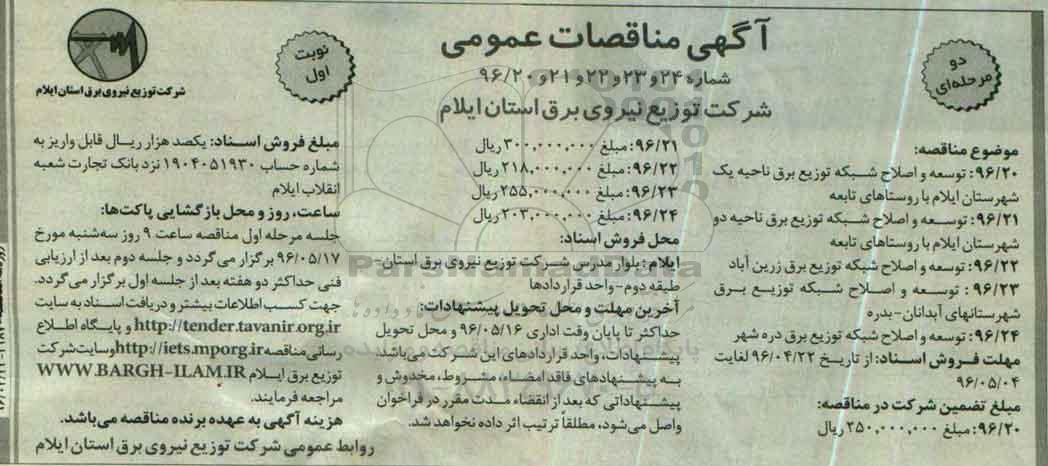 آگهی مناقصات عمومی
شماره ۲۴و۲۳و۲۲و۲۱و۹۶/۲۰
شرکت توزیع نیروی برق استان ایلام
دو
مرحله‌ای
نوبت
اول
شرکت توزیع نیروی برق استان ایلام
موضوع مناقصه:
۹۶/۲۰: توسعه و اصلاح شبکه توزیع برق ناحیه یک
شهرستان ایلام با روستاهای تابعه
۹۶/۲۱: توسعه و اصلاح شبکه توزیع برق ناحیه دو
شهرستان ایلام با روستاهای تابعه
۹۶/۲۲: توسعه و اصلاح شبکه توزیع برق زرین آباد
۹۶/۲۳: توسعه و اصلاح شبکه توزیع برق
شهرستانهای آبدانان-بدره
۹۶/۲۴: توسعه و اصلاح شبکه توزیع برق دره شهر
مهلت فروش اسناد: از تاریخ ۹۶/۰۴/۲۲ لغایت
۹۶/۰۵/۰۴
مبلغ تضمین شرکت در مناقصه:
۹۶/۲۰: مبلغ ۲۵۰,۰۰۰,۰۰۰ ریال
۹۶/۲۱: مبلغ ۳۰۰,۰۰۰,۰۰۰ ریال
۹۶/۲۲: مبلغ ۲۱۸,۰۰۰,۰۰۰ ریال
۹۶/۲۳: مبلغ ۲۵۵,۰۰۰,۰۰۰ ریال
۹۶/۲۴: مبلغ ۲۰۳,۰۰۰,۰۰۰ ریال
محل فروش اسناد:
ایلام: بلوار مدرس شرکت توزیع نیروی برق استان-
طبقه دوم-واحد قراردادها
آخرین مهلت و محل تحویل پیشنهادات:
حداکثر تا پایان وقت اداری ۹۶/۰۵/۱۶ و محل تحویل
پیشنهادات، واحد قراردادهای این شرکت می‌باشد.
به پیشنهادهای فاقد امضاء، مشروط، مخدوش و
پیشنهاداتی که بعد از انقضاء مدت مقرر در فراخوان
واصل می‌شود، مطلقاً ترتیب اثر داده نخواهد شد.
مبلغ فروش اسناد: یکصد هزار ریال قابل واریز به
شماره حساب ۱۹۰۴۰۵۱۹۳۰ نزد بانک تجارت شعبه
انقلاب ایلام
ساعت، روز و محل بازگشایی پاکت‌ها:
جلسه مرحله اول مناقصه ساعت ۹ روز سه‌شنبه مورخ
۹۶/۰۵/۱۷ برگزار می‌گردد و جلسه دوم بعد از ارزیابی
فنی حداکثر دو هفته بعد از جلسه اول برگزار می‌گردد.
جهت کسب اطلاعات بیشتر و دریافت اسناد به سایت
http://tender.tavanir.org.ir و پایگاه اطلاع
رسانی مناقصه http://iets.mporg.ir و سایت شرکت
توزیع برق ایلام WWW.BARGH-ILAM.IR
مراجعه فرمایند.
هزینه آگهی به عهده برنده مناقصه می‌باشد.
روابط عمومی شرکت توزیع نیروی برق استان ایلام